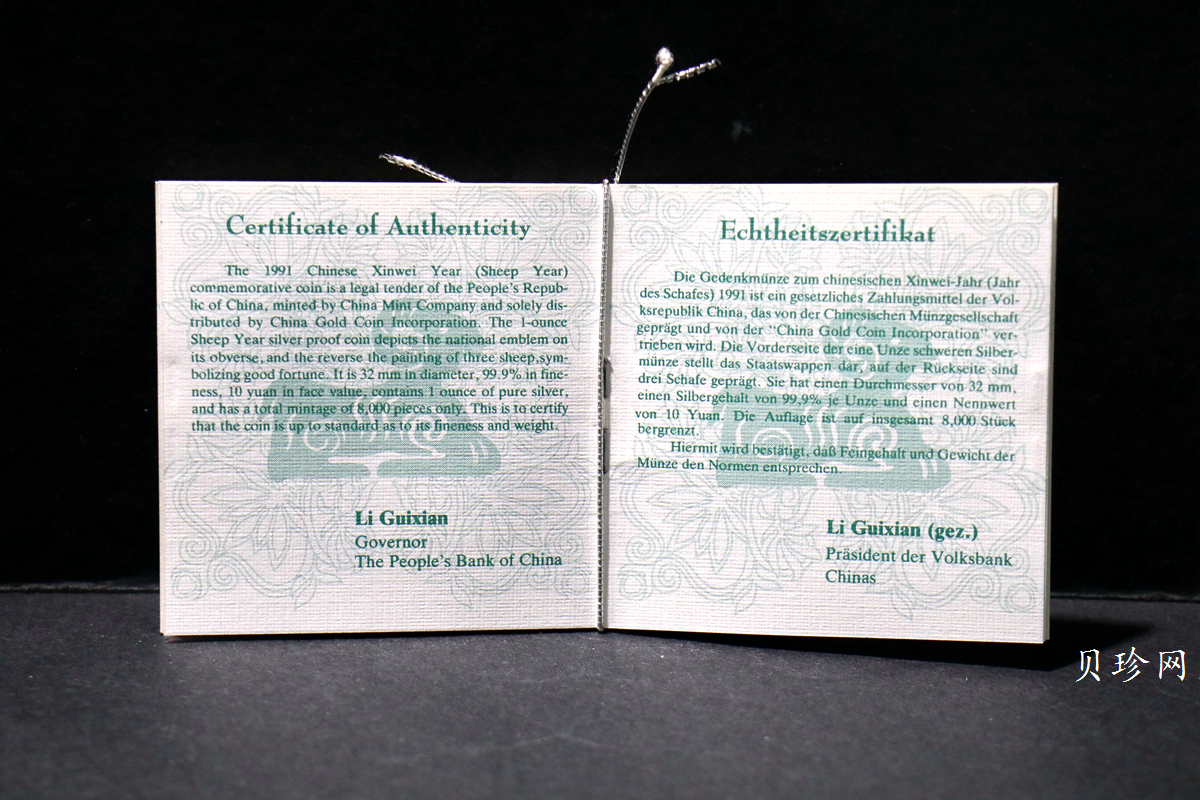 Certificate of Authenticity
The 1991 Chinese Xinwei Year (Sheep Year)
commemorative coin is a legal tender of the People's Repub-
lic of China, minted by China Mint Company and solely dis-
tributed by China Gold Coin Incorporation. The 1-ounce
Sheep Year silver proof coin depicts the national emblem on
its obverse, and the reverse the painting of three sheep,sym-
bolizing good fortune. It is 32 mm in diameter, 99.9% in fine-
ness, 10 yuan in face value, contains 1 ounce of pure silver,
and has a total mintage of 8,000 pieces only. This is to certify
that the coin is up to standard as to its fineness and weight.
Li Guixian
Governor
The People's Bank of China
Echtheitszertifikat
Die Gedenkmünze zum chinesischen Xinwei-Jahr (Jahr
des Schafes) 1991 ist ein gesetzliches Zahlungsmittel der Vol-
ksrepublik China, das von der Chinesischen Münzgesellschaft
geprägt und von der "China Gold Coin Incorporation" ver-
trieben wird. Die Vorderseite der eine Unze schweren Silber-
münze stellt das Staatswappen dar, auf der Rückseite sind
drei Schafe geprägt. Sie hat einen Durchmesser von 32 mm,
einen Silbergehalt von 99,9% je Unze und einen Nennwert
von 10 Yuan. Die Auflage ist auf insgesamt 8,000 Stück
bergrenzt.
Hiermit wird bestätigt, daß Feingehalt und Gewicht der
Münze den Normen entsprechen.
Li Guixian (gez.)
Präsident der Volksbank
Chinas
贝珍网